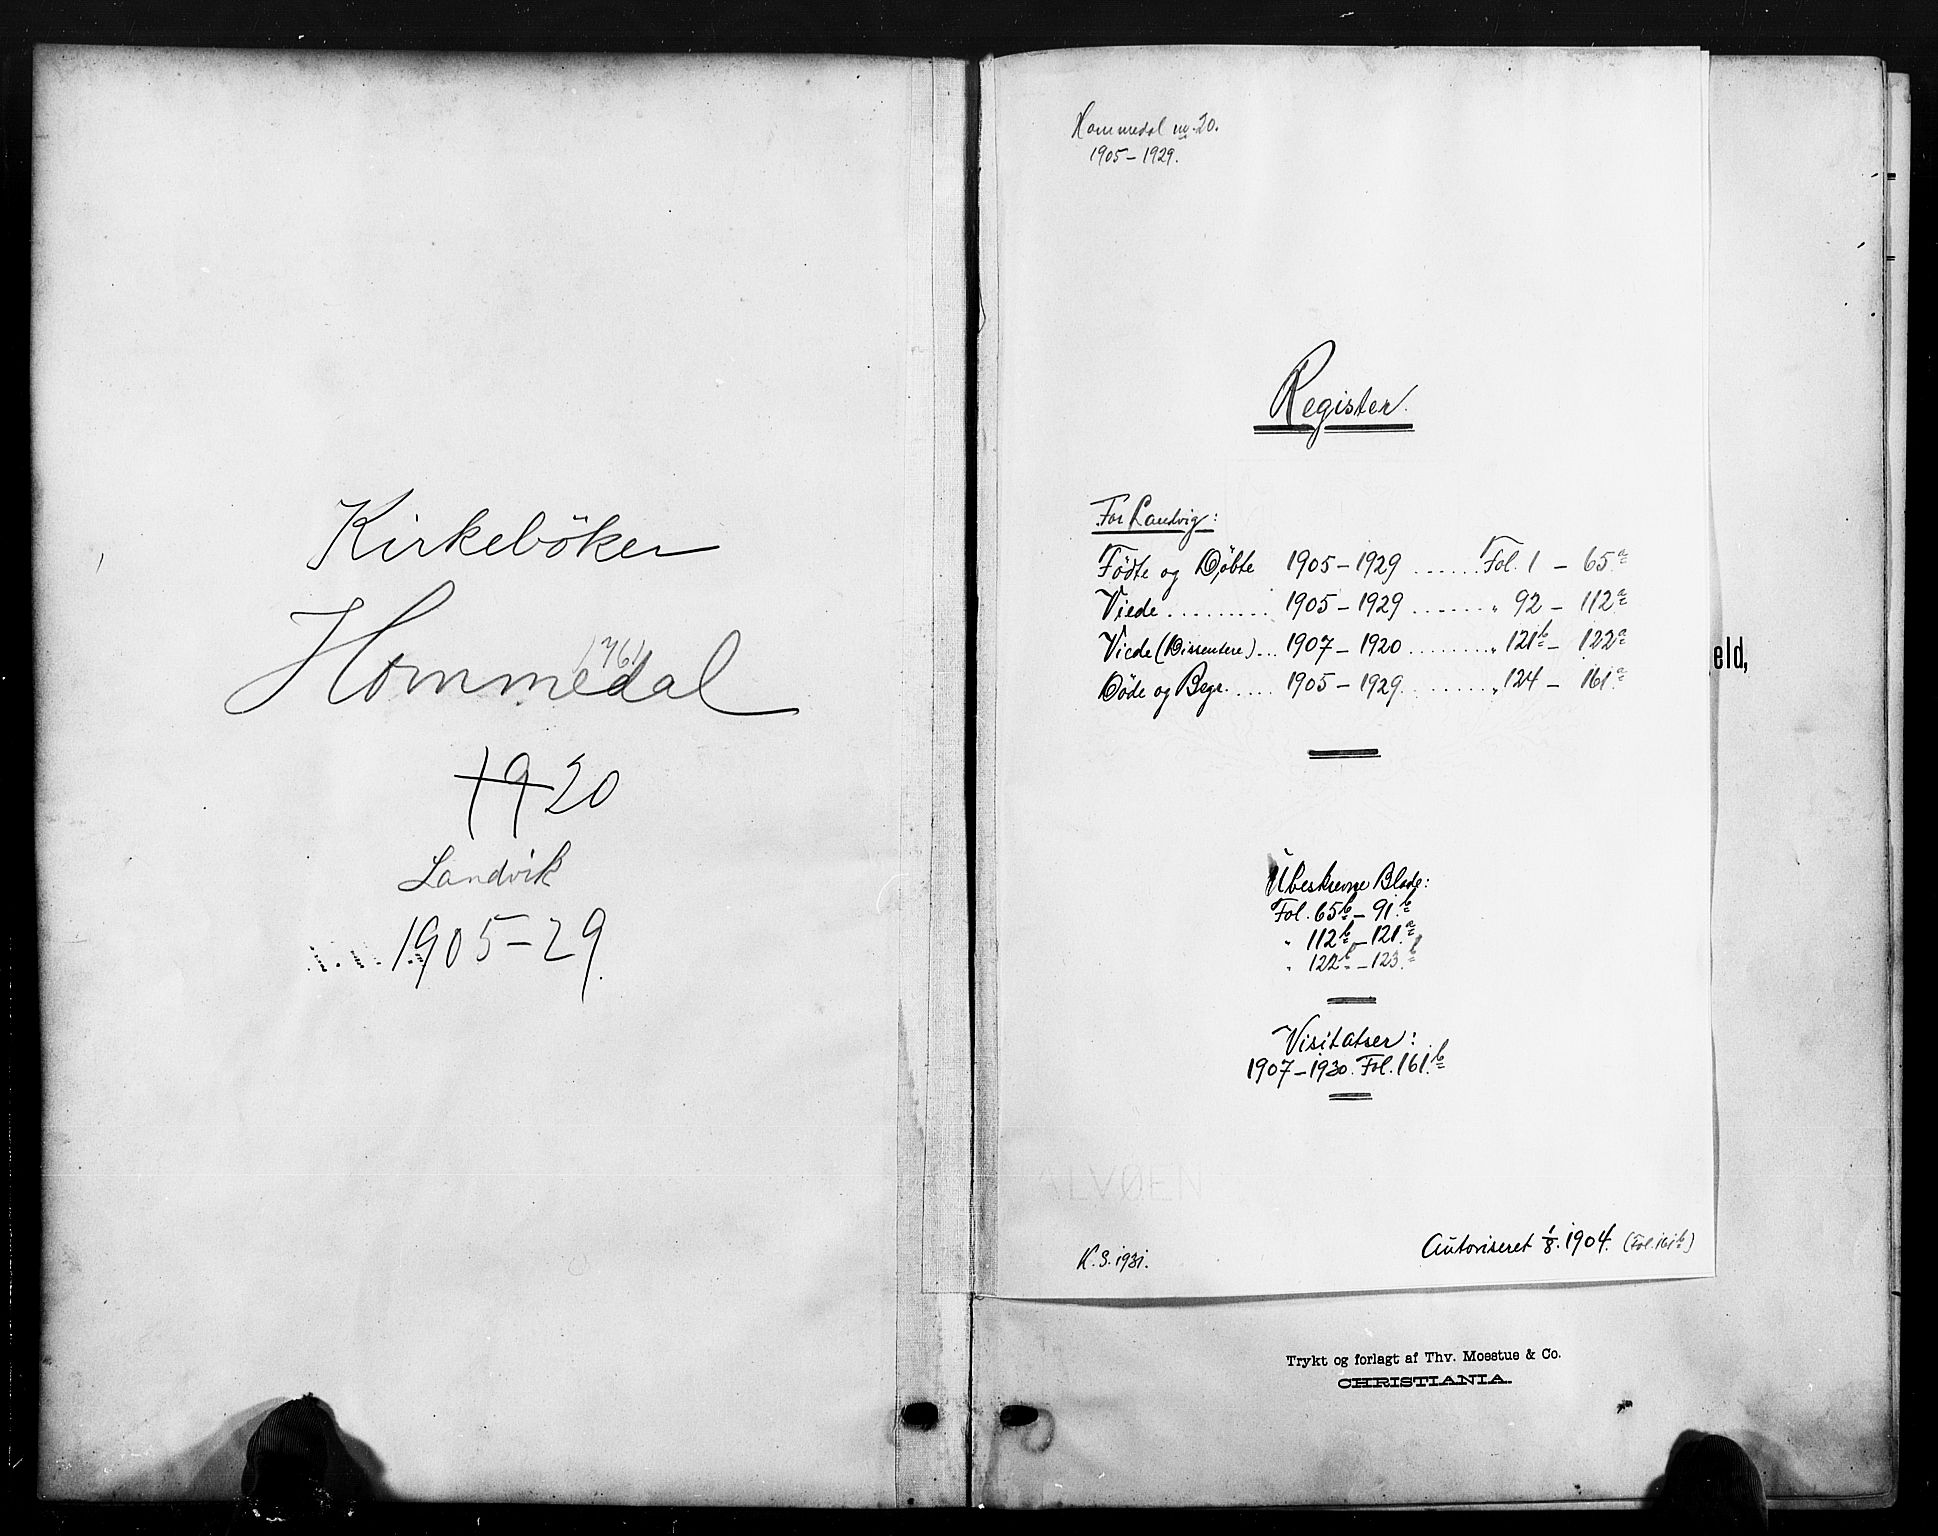 Kirkebøker
Hommedal
1920
Landvik
1905-29.
Hommedal no. 20.
1905-1929.
Register.
For Landvig:
Fødte og Døbte 1905-1929 ...... Fol. 1 - 65a
Viede ......... 1905-1929 ...... " 92 - 112a
Viede (Dissentere)... 1907-1920 ........ " 121b - 122a
Døde og Begr. .... 1905-1929 ........ " 124 - 161a
eld,
Ubeskrevne Blade:
Fol. 65b - 91b
" 112b - 121a
" 122b - 123b
Visitatser:
1907-1930. Fol. 161b
ALVØEN
K. S. 1931.
Autoriseret 1/8. 1904. (Fol. 161b)
Trykt og forlagt af Thv. Moestue & Co.
CHRISTIANIA.